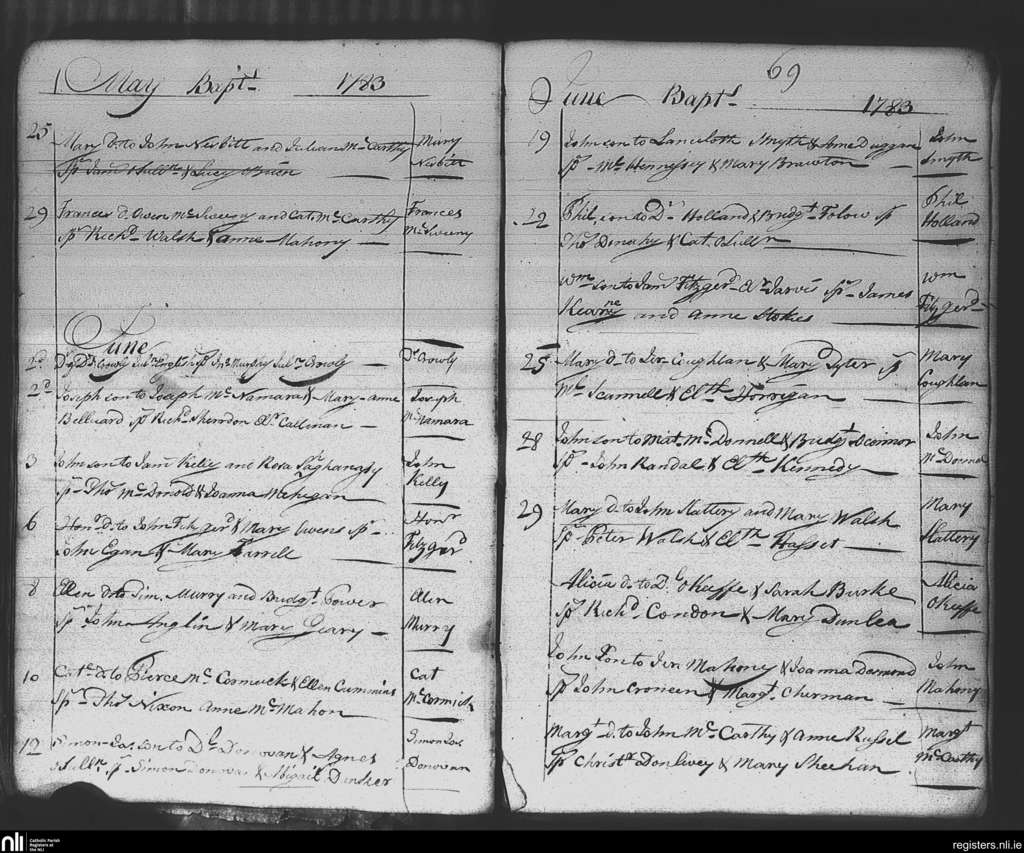 May Bapts 1783
25 Mary d. to John Nesbitt and Julean McCarthy Mary
Sp. Jam Sullvn & Lucy OBrien Nesbitt
29 Frances d. Owen McSweeny and Cat. McCarthy Frances
Sp. Richd Walsh & Anne Mahony McSweeny
June
2d Crowly Sp. Jno Murphy Crowly Dl Crowly
2d Joseph son to Joseph McNamara & Mary-anne Joseph
Sp. Richd Sherdon Callinan McNamara
3 John son to Jam Kelly and Rosa John
Sp. Thos & Joanna Mehegan Kelly
6 Honr d. to John Fitzgerd & Mary Owens Sp. Honr
John Egan & Mary Farrell Fitzgerd
8 Ellen d. to Jim. Murry and Budgt Power Ellen
Sp. John Anglin & Mary Geary Murry
10 Cat. d. to Pierce McCormick & Ellen Cummins Cat
Sp. Thos Nixon Anne McMahon McCormick
12 Simon-Jas. son to Dl Donovan & Agnes Simon Jas
Sp. Simon Donovan & Abigail Donovan
69
June Bapts 1783
19 John son to Lanceloth Smyth & Anne Duggan John
Sp. Ml Hennessy & Mary Brawton Smyth
22 Phil. son to Dl Holland & Budgt Sp Phil
Thos & Cat. OSullvn Holland
Wm son to Jam Fitzgerd Jarvis Sp. James Wm
Kearney and Anne Stokes Fitzgerd
25 Mary d. to Jer. Coughlan & Mary Sp Mary
Ml Scannell & Elth Horrigan Coughlan
28 John son to Mat. McDonnell & Budgt John
Sp. John Randal & Elth Kennedy McDonnel
29 Mary d. to John Slattery and Mary Walsh Mary
Sp. Peter Walsh & Elth Hasset Slattery
Alicia d. to Dl OKeeffe & Sarah Burke Alicia
Sp. Richd Condon & Mary Dunlea OKeeffe
John Son to Jer Mahony & Joanna Desmond John
Sp. John Croneen & Margt. Cherman Mahony
Margt d. to John McCarthy & Anne Russel Margt
Sp Christr Donlivey & Mary Sheehan McCarthy
nli Catholic Parish
Registers at
the NLI
registers.nli.ie